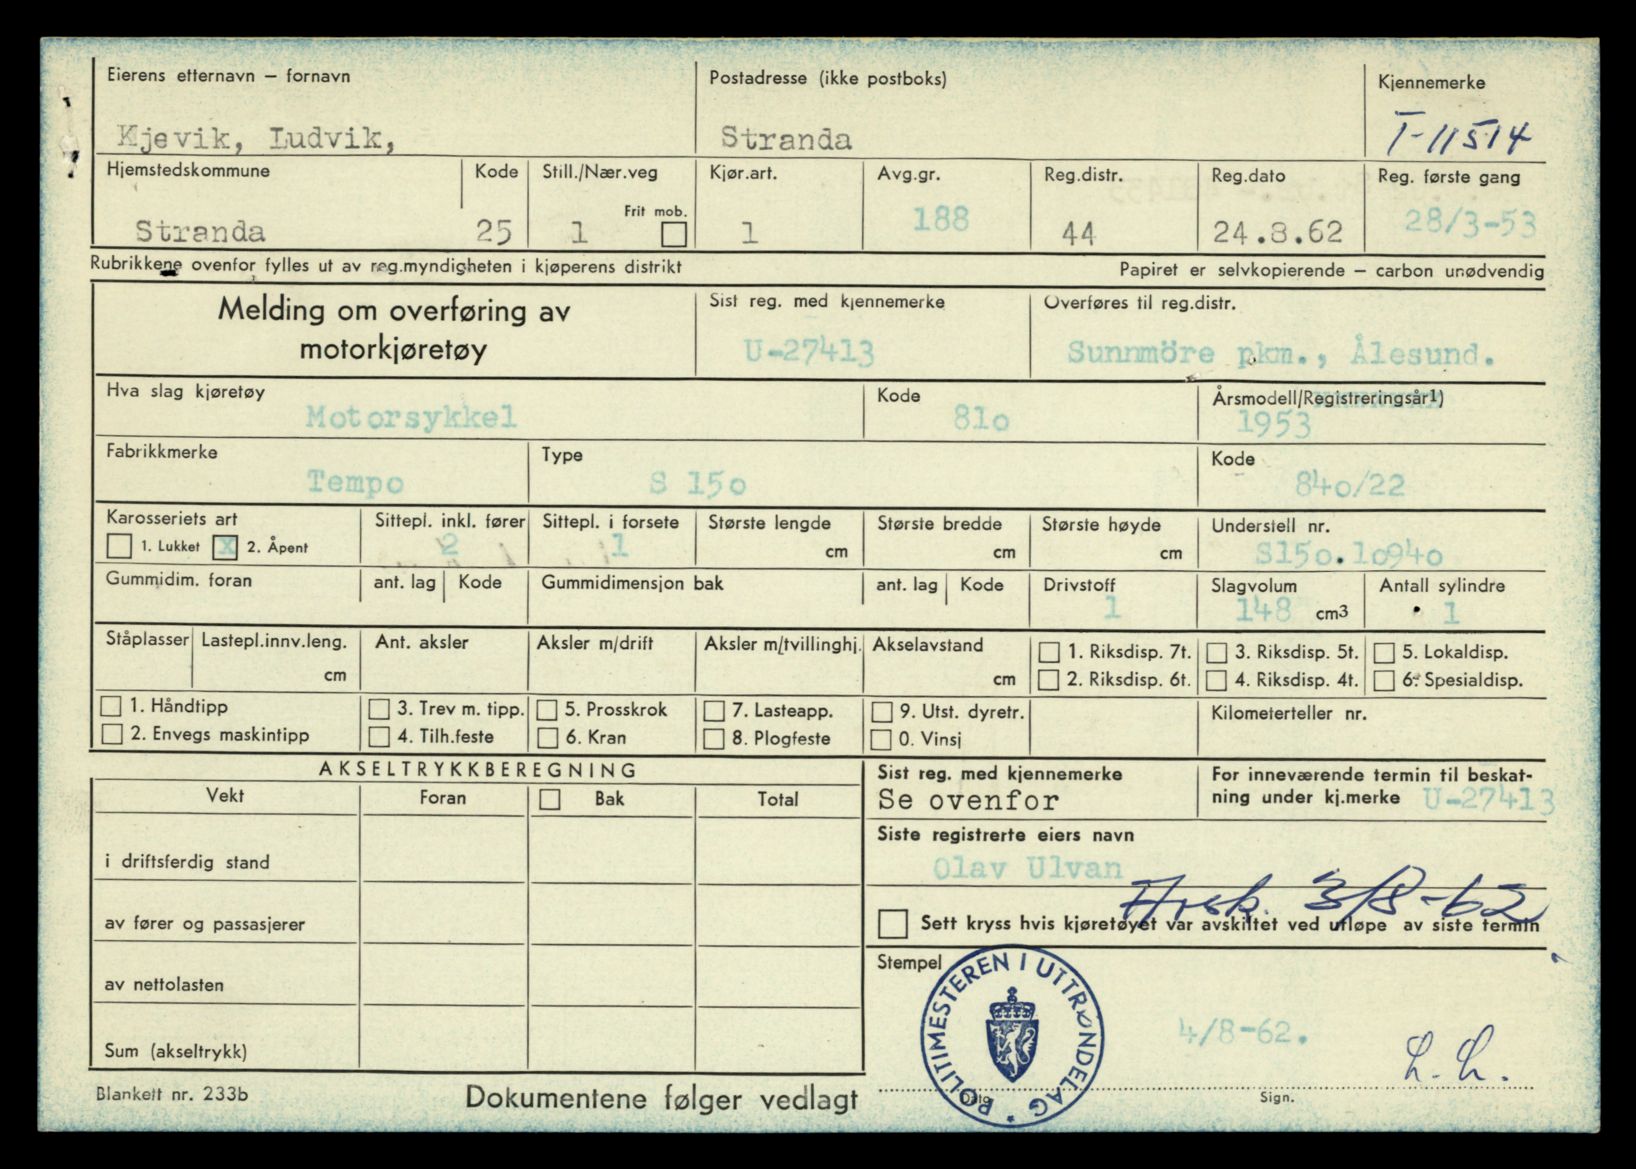 Eierens etternavn – fornavn Postadresse (ikke postboks) Kjennemerke
Kjevik, Ludvik, Stranda T-11514
Hjemstedskommune Kode Still./Nær.veg Kjør.art. Avg.gr. Reg.distr. Reg.dato Reg. første gang
Frit mob.
Stranda 25 1 1 188 44 24.8.62 28/3-53
Rubrikkene ovenfor fylles ut av reg.myndigheten i kjøperens distrikt Papiret er selvkopierende – carbon unødvendig
Melding om overføring av motorkjøretøy
Sist reg. med kjennemerke Overføres til reg.distr.
U-27413 Sunnmöre pkm., Ålesund.
Hva slag kjøretøy Kode Årsmodell/Registreringsår1)
Motorsykkel 81o 1953
Fabrikkmerke Type Kode
Tempo S 15o 84o/22
Karosseriets art Sittepl. inkl. fører Sittepl. i forsete Største lengde Største bredde Største høyde Understell nr.
1. Lukket X 2. Åpent 2 1 cm cm cm S15o.1o94o
Gummidim. foran ant. lag Kode Gummidimensjon bak ant. lag Kode Drivstoff Slagvolum Antall sylindre
1 148 cm3 1
Ståplasser Lastepl.innv.leng. Ant. aksler Aksler m/drift Aksler m/tvillinghj. Akselavstand 1. Riksdisp. 7t. 3. Riksdisp. 5t. 5. Lokaldisp.
cm cm 2. Riksdisp. 6t. 4. Riksdisp. 4t. 6. Spesialdisp.
1. Håndtipp 3. Trev m. tipp. 5. Prosskrok 7. Lasteapp. 9. Utst. dyretr. Kilometerteller nr.
2. Envegs maskintipp 4. Tilh.feste 6. Kran 8. Plogfeste 0. Vinsj
AKSELTRYKKBEREGNING
Vekt Foran Bak Total
i driftsferdig stand
av fører og passasjerer
av nettolasten
Sum (akseltrykk)
Sist reg. med kjennemerke For inneværende termin til beskat-
Se ovenfor ning under kj.merke U-27413
Siste registrerte eiers navn
Olav Ulvan
Avsk. 3/8-62
Sett kryss hvis kjøretøyet var avskiltet ved utløpe av siste termin
Stempel
POLITIMESTEREN I UTTRØNDELAG *
4/8-62.
L. L.
Dato Sign.
Blankett nr. 233b Dokumentene følger vedlagt